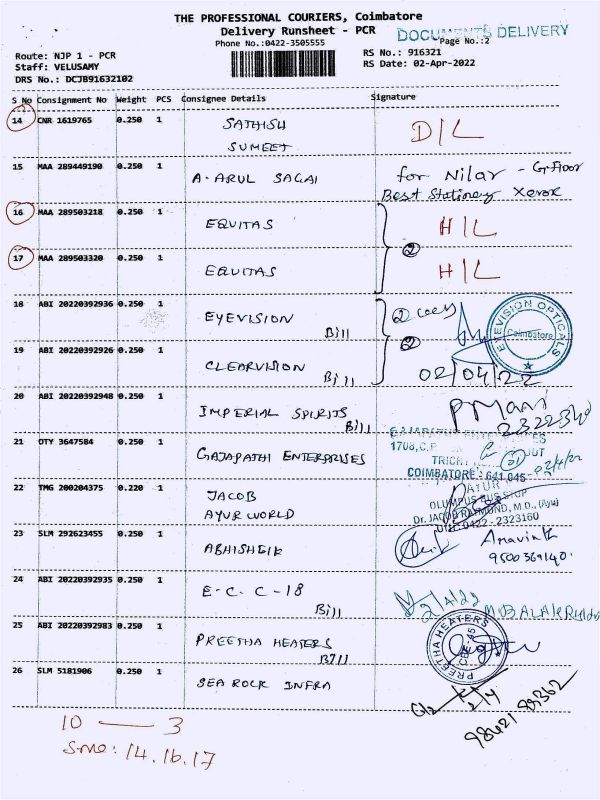 THE PROFESSIONAL COURIERS, Coimbatore
Delivery Runsheet - PCR
DOCUMENTS DELIVERY
Phone No.:0422-3505555
Page No.:2
Route: NJP 1 - PCR
RS No.: 916321
Staff: VELUSAMY
RS Date: 02-Apr-2022
DRS No.: DCJB91632102
S No Consignment No Weight PCS Consignee Details Signature
14 CNR 1619765 0.250 1 SATHISH D/L
SUMEET
15 MAA 289449190 0.250 1 A. ARUL SAGAI for Nilar - G.Floor
Best Stationery Xerox
16 MAA 289503218 0.250 1 EQUITAS H/L
2
17 MAA 289503320 0.250 1 EQUITAS H/L
18 ABI 20220392936 0.250 1 EYEVISION Bill 2
EYEVISION OPTICALS, Coimbatore
2
19 ABI 20220392926 0.250 1 CLEARVISION Bill 02/04/22
20 ABI 20220392948 0.250 1 IMPERIAL SPIRITS Bill P Mani
2322340
21 OTY 3647584 0.250 1 GAJAPATHI ENTERPRISES
GAJAPATHI ENTERPRISES
1708,
TRICHY
COIMBATORE : 641 045
22 TMG 200204375 0.220 1 JACOB
AYUR WORLD
OLUMPUS BUS STOP
Dr. JACOB RAYMOND, M.D., (Ayu)
0422 - 2323160
23 SLM 292623455 0.250 1 ABHISHEIK Aravinth
24 ABI 20220392935 0.250 1 E. C. C - 18 Bill 2/4/22
25 ABI 20220392983 0.250 1 PREETHA HEATERS Bill
PREETHA HEATERS
CBE-45
26 SLM 5181906 0.250 1 SEA ROCK INFRA
10 — 3
Sno: 14.16.17